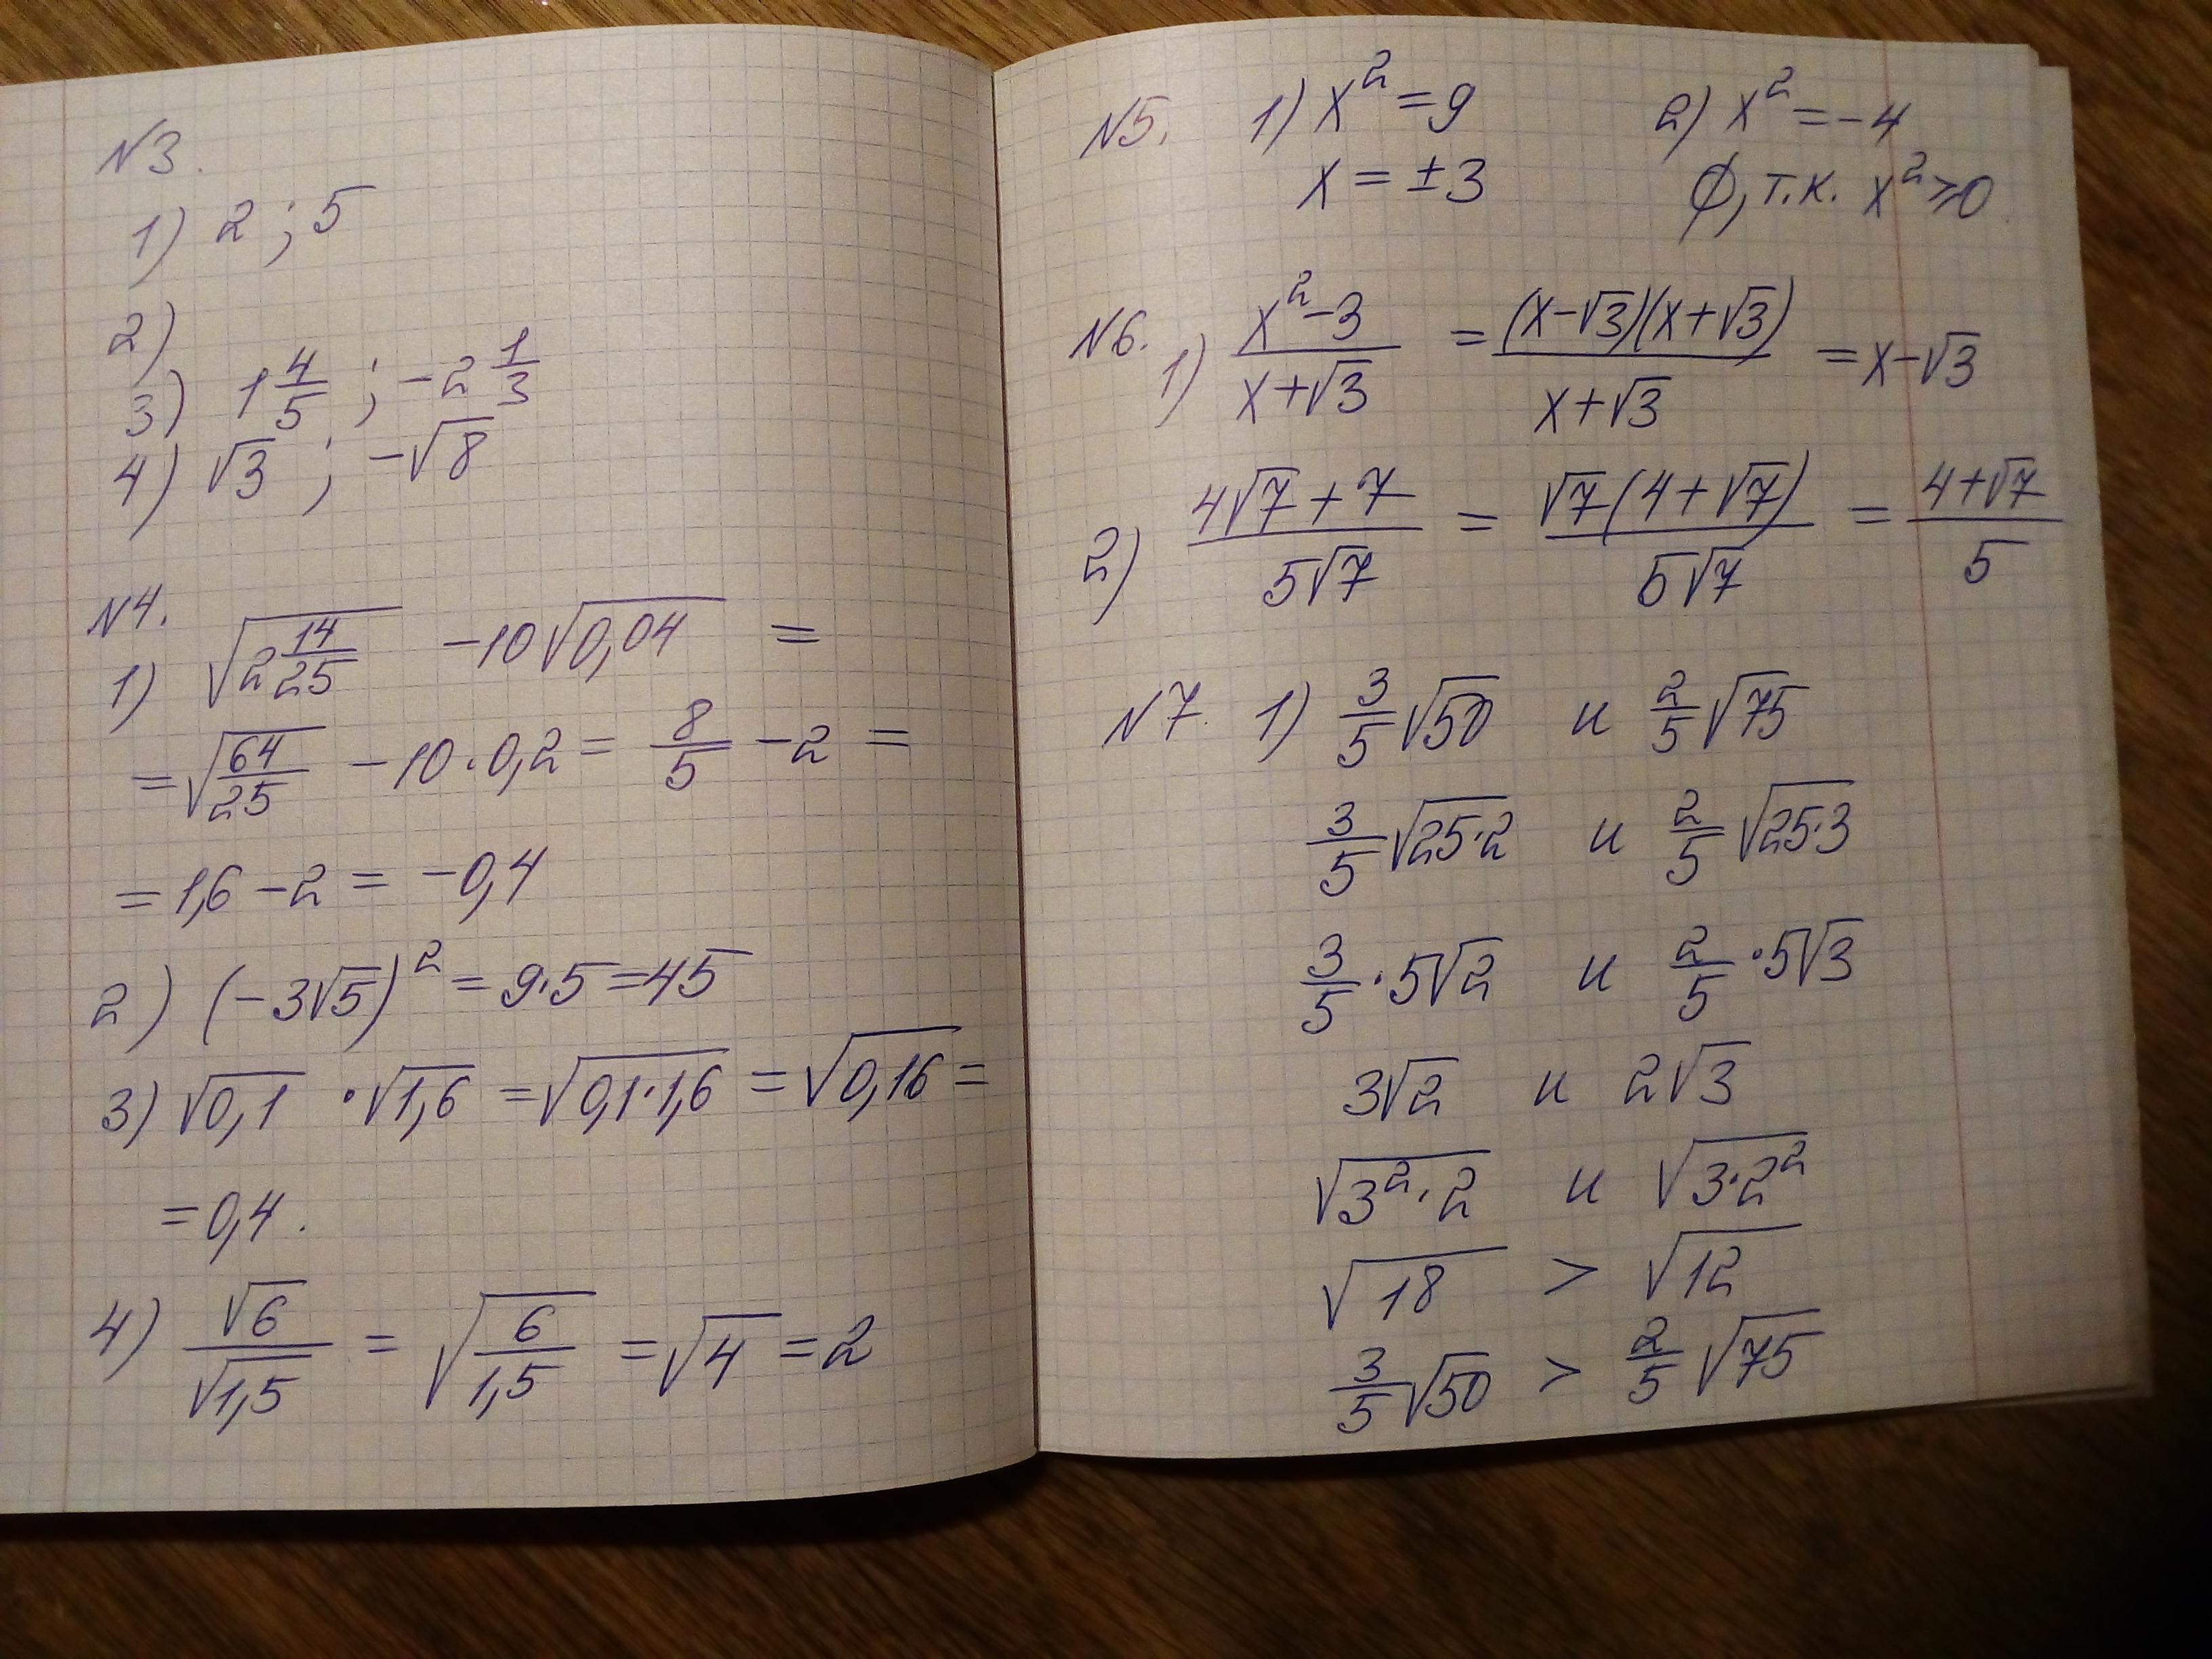 N3.
1) 2 ; 5
2)
3) 1 4/5 ; -2 1/3
4) √3 ; -√8
N4.
1) √(2 14/25) - 10√0,04 =
= √(64/25) - 10·0,2 = 8/5 - 2 =
= 1,6 - 2 = -0,4
2) (-3√5)² = 9·5 = 45
3) √0,1 · √1,6 = √(0,1·1,6) = √0,16 =
= 0,4.
4) √6/√1,5 = √(6/1,5) = √4 = 2
N5. 1) x² = 9 2) x² = -4
x = ±3 ∅, т.к. x² ≥ 0
N6. 1) (x² - 3)/(x + √3) = (x - √3)(x + √3)/(x + √3) = x - √3
2) (4√7 + 7)/(5√7) = √7(4 + √7)/(5√7) = (4 + √7)/5
N7. 1) 3/5 √50 и 2/5 √75
3/5 √(25·2) и 2/5 √(25·3)
3/5 · 5√2 и 2/5 · 5√3
3√2 и 2√3
√(3²·2) и √(3·2²)
√18 > √12
3/5 √50 > 2/5 √75